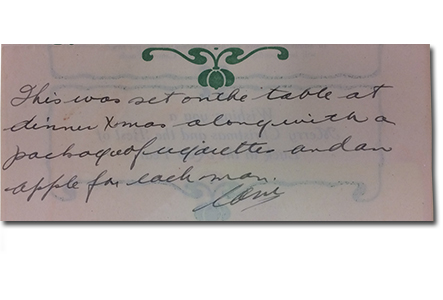 This was set on the table at
dinner Xmas along with a
package of cigarettes and an
apple for each man.